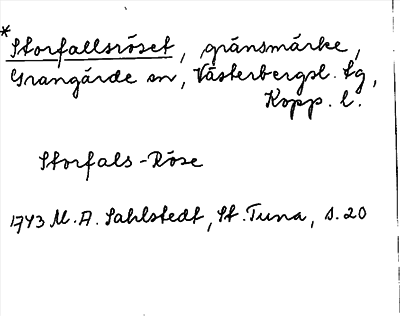 *Storfallsröset, gränsmärke,
Grangärde sn, Västerbergsl. tg,
Kopp. l.
Storfals-Röse
1743 M.A. Sahlstedt, St. Tuna, s. 20